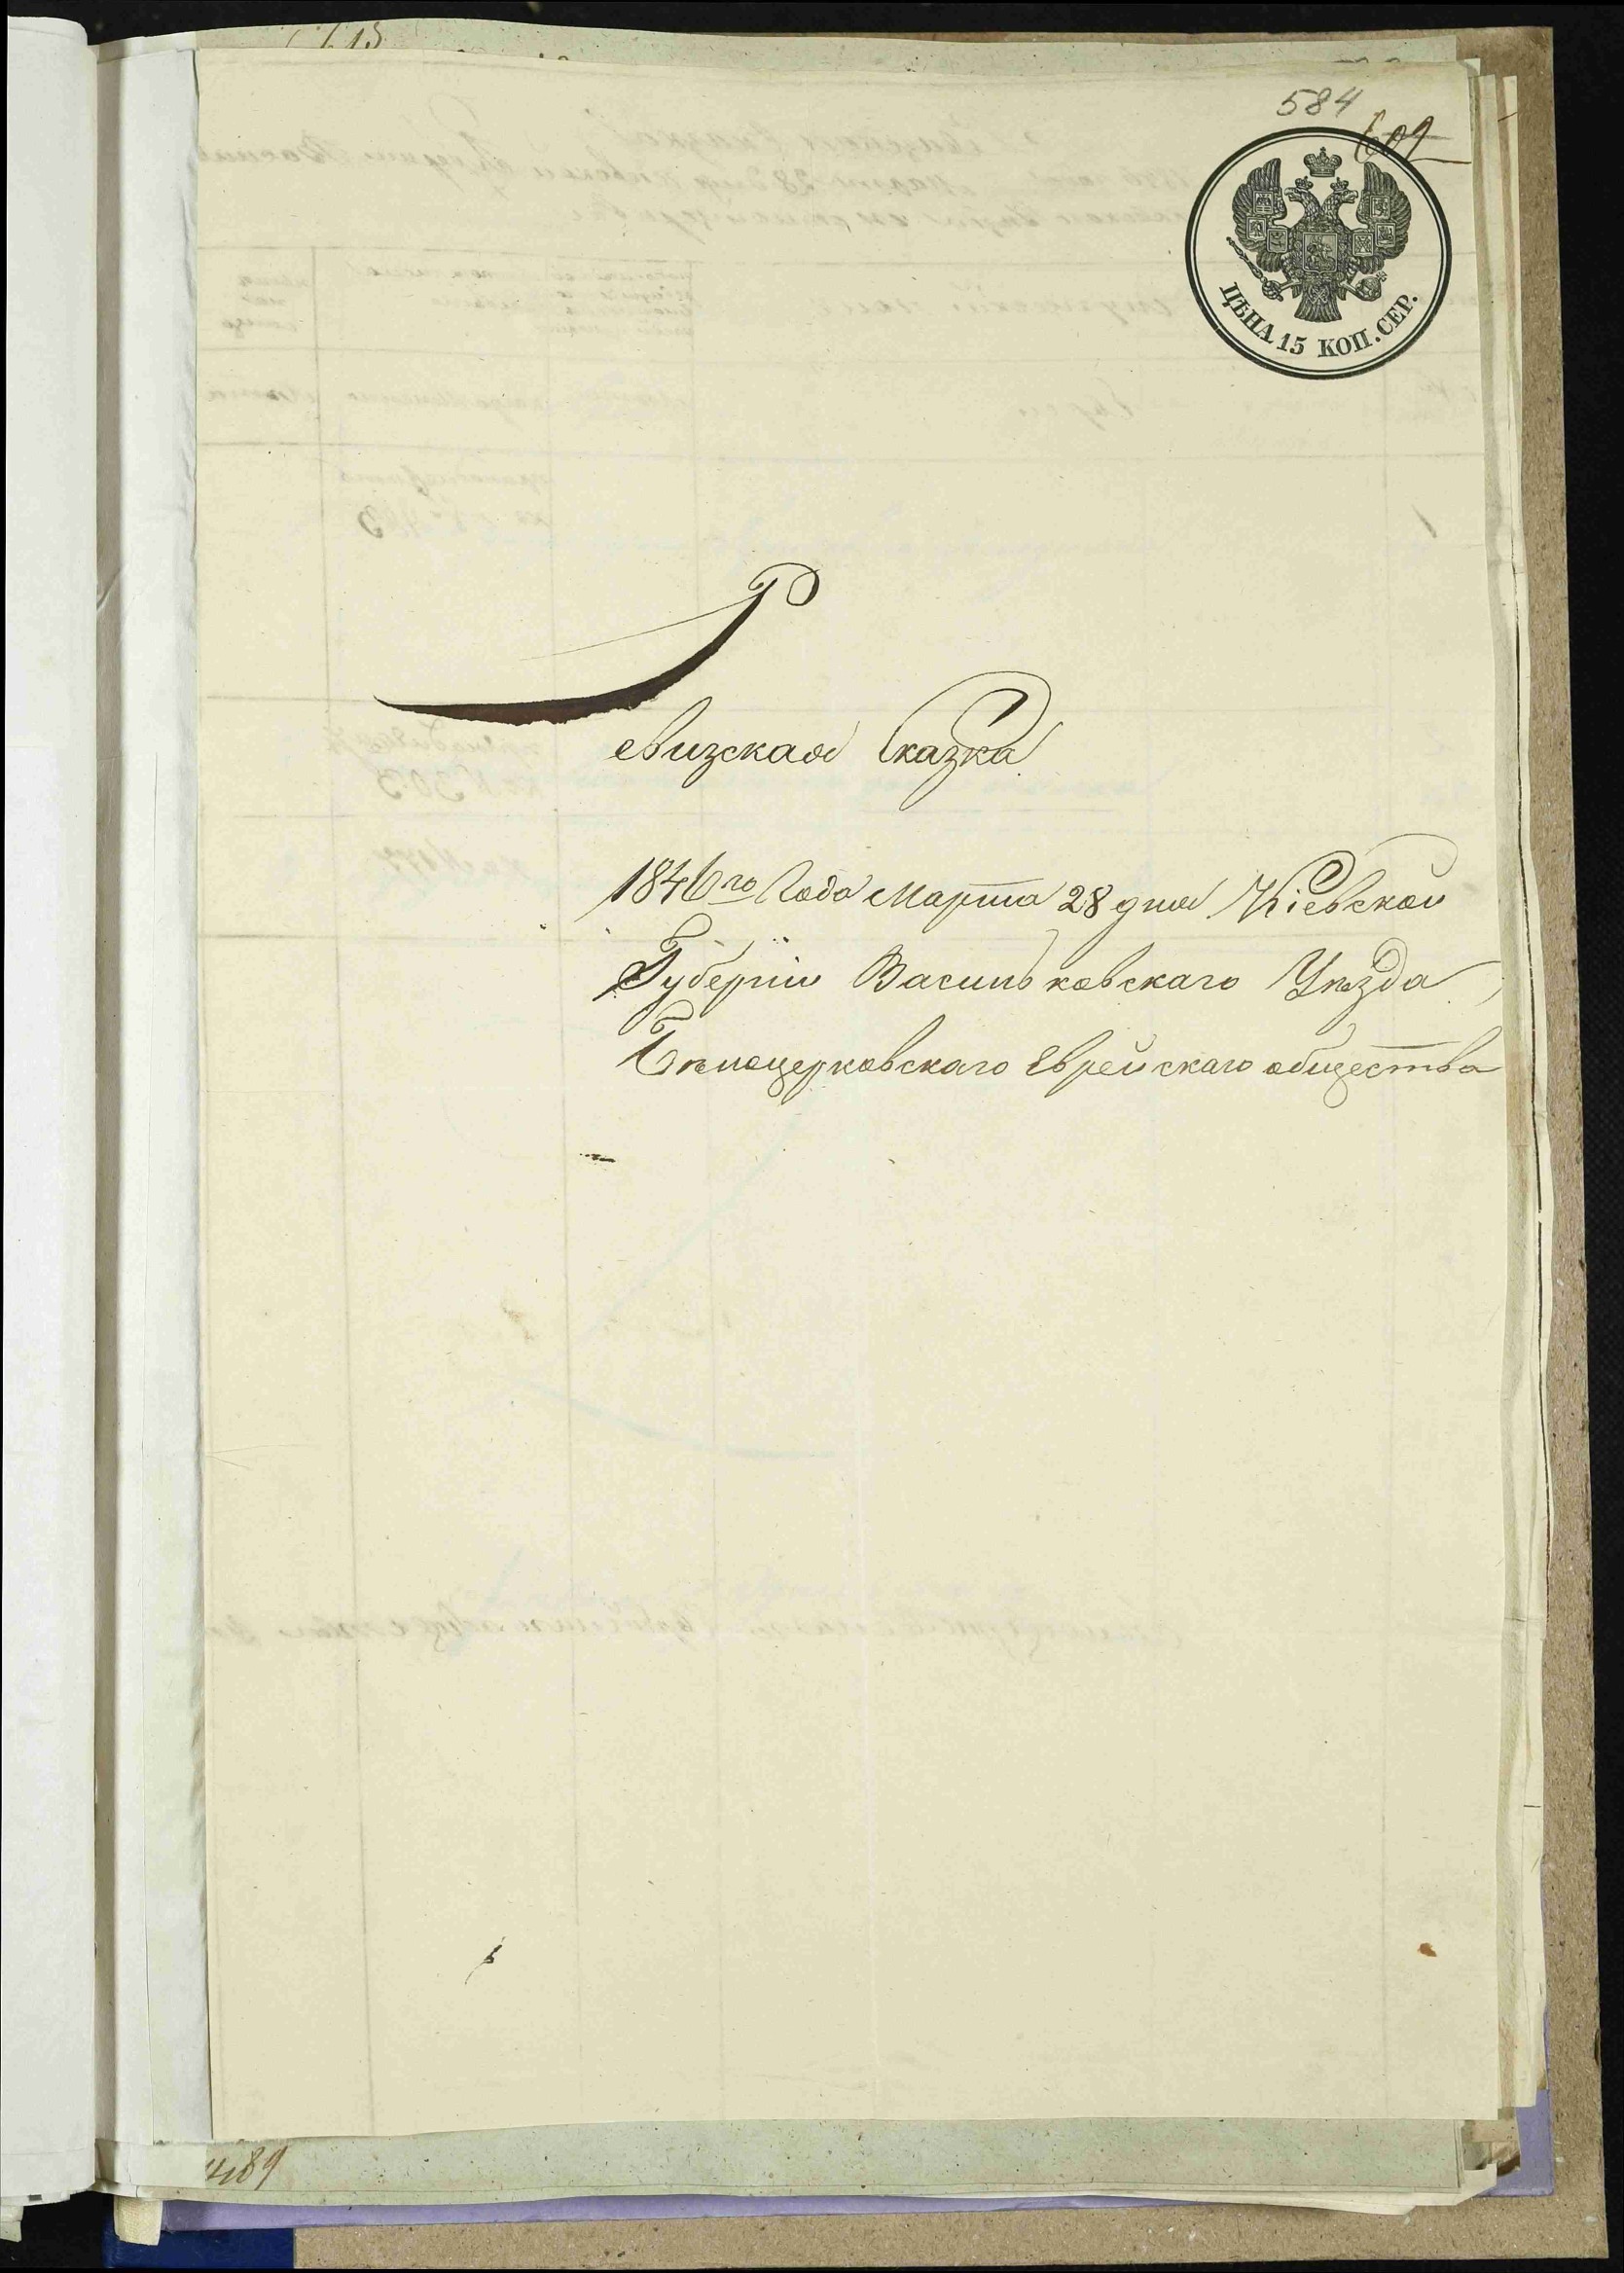 584
602
ЦѢНА 15 КОП. СЕР.
Ревизская Сказка
1846го Года Марта 28 дня Кіевской
Губерніи Васильковскаго Уѣзда
Бѣлоцерковскаго Еврейскаго общества
489